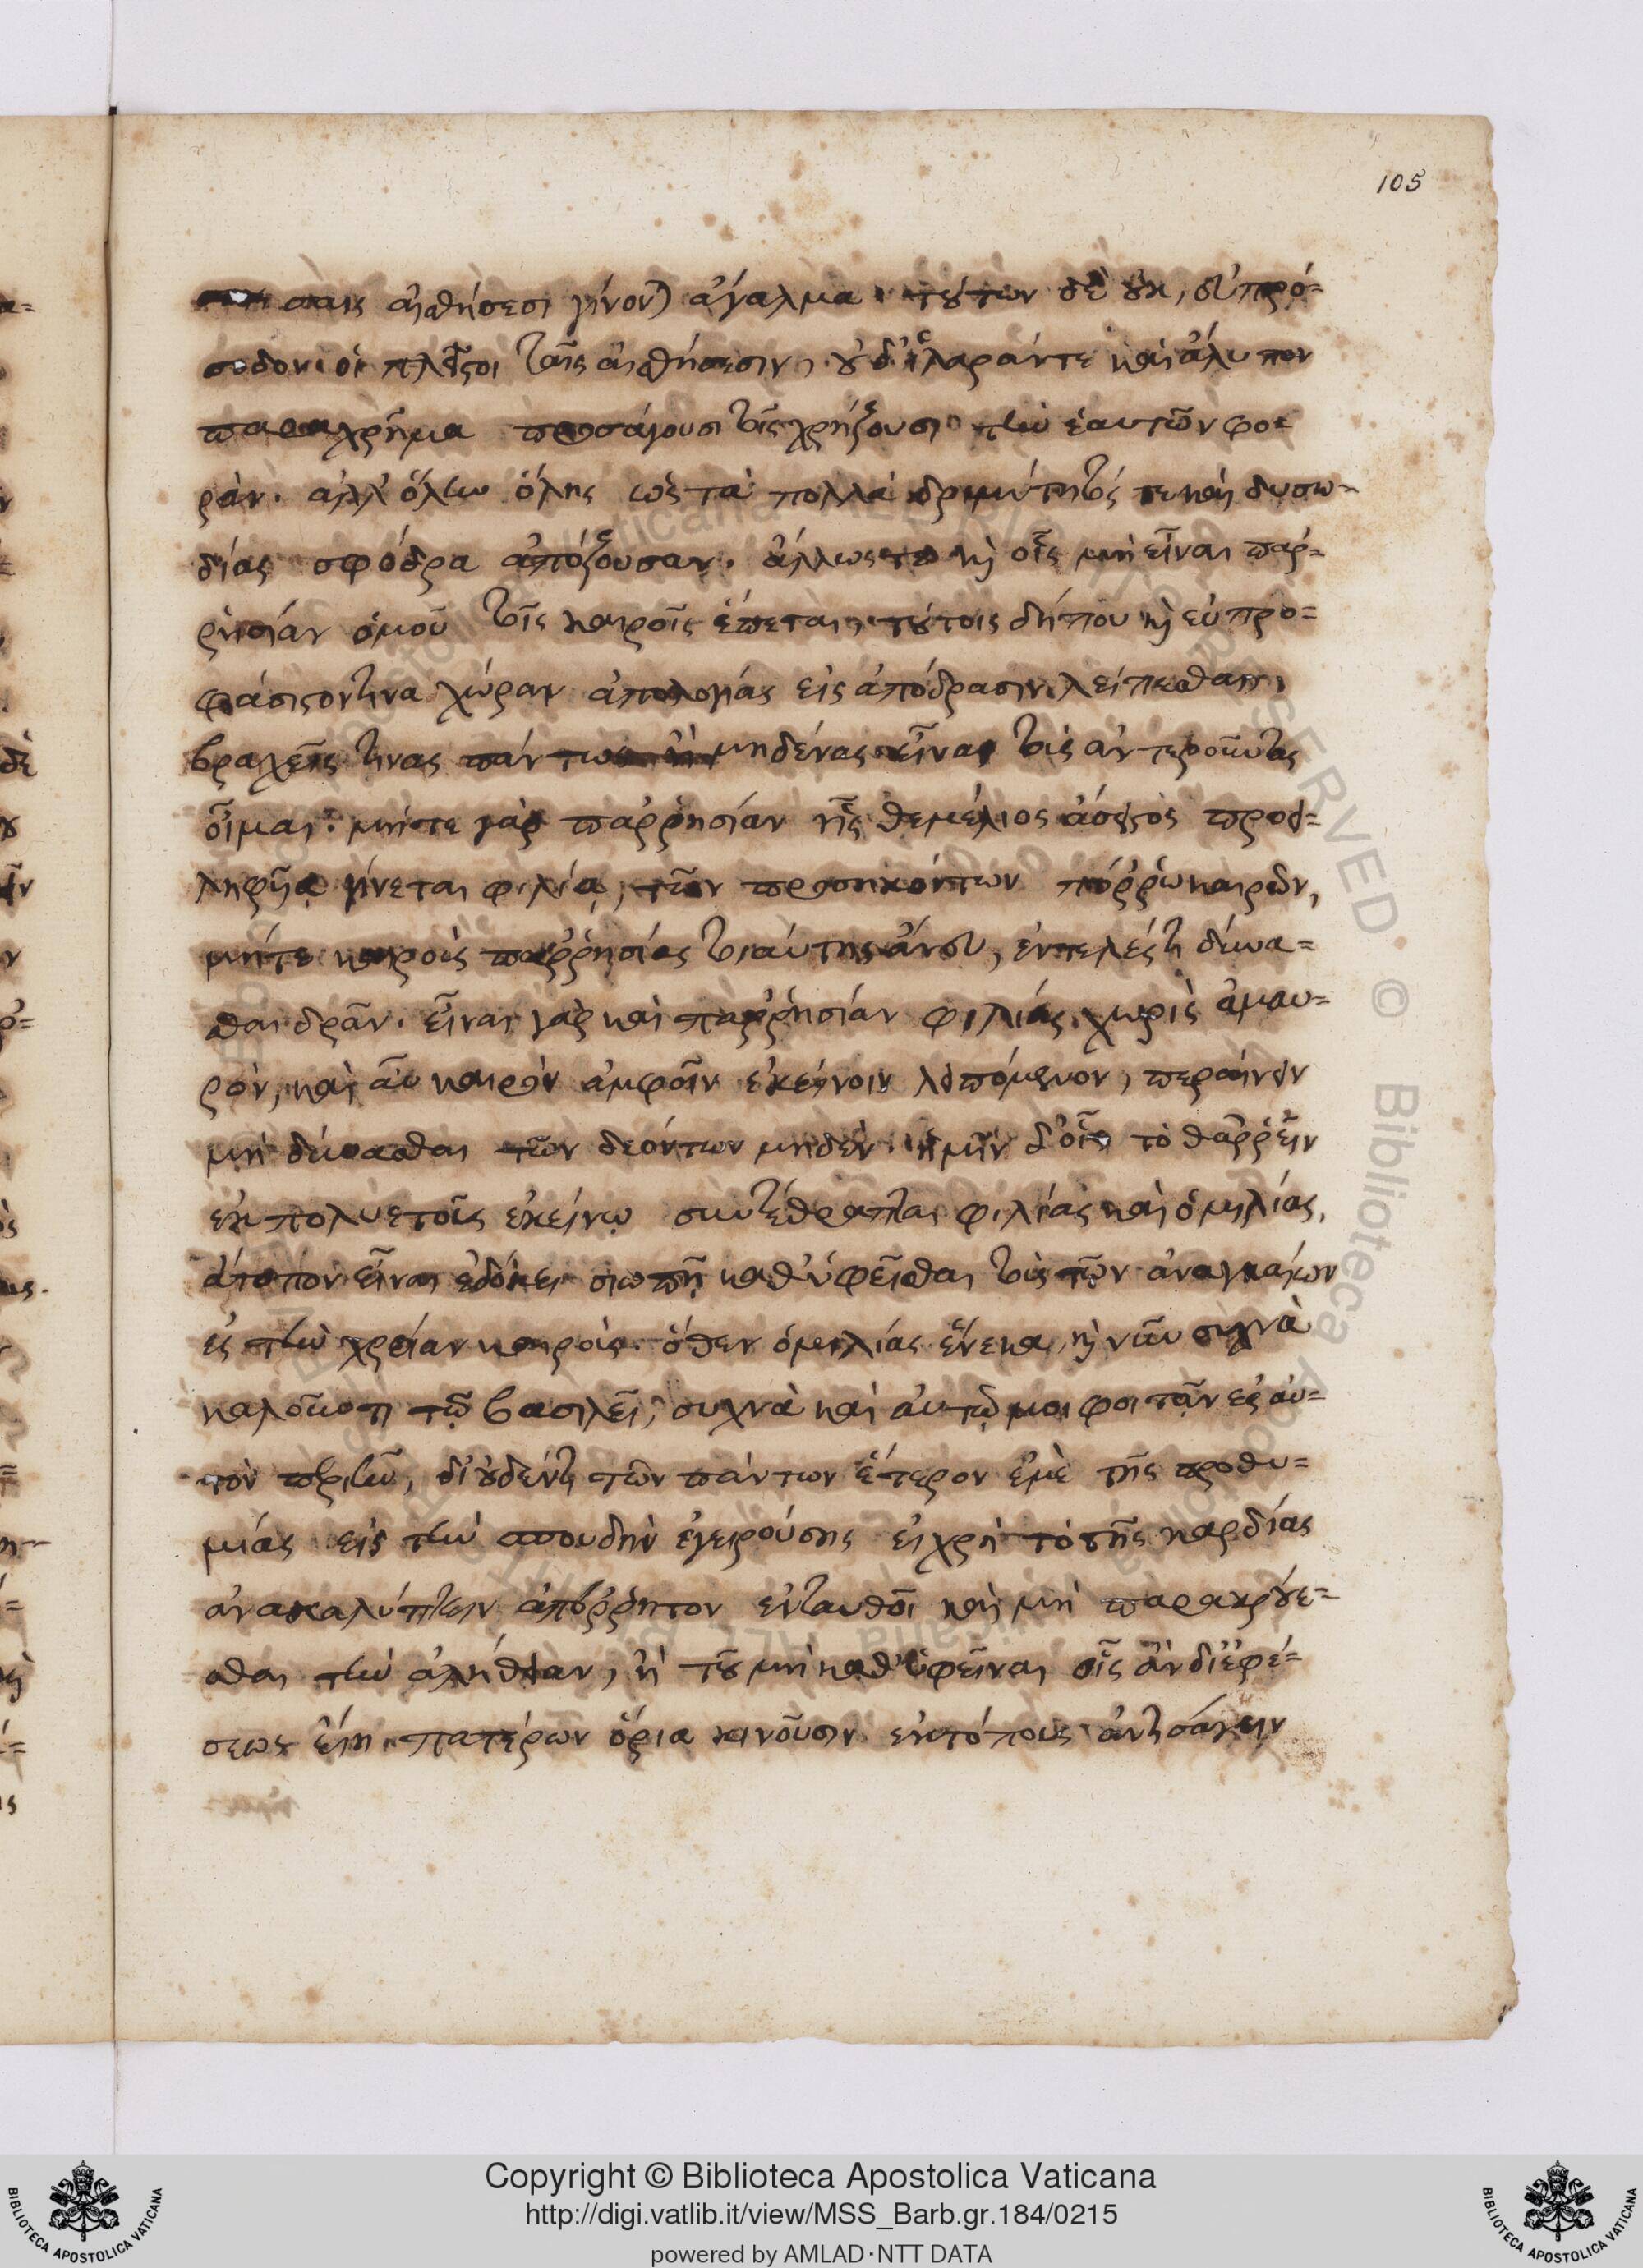 105
σαις αἰσθήσεσι γίνον) ἄγαλμα. τούτων δὲ οὐκ, εὐπρό=
σοδον οἱ πλεῖστοι ταῖς αἰσθήσεσιν, οὐδ' ἱλαράν τε καὶ ἄλυπον
παραχρῆμα προσάγουσι τοῖς χρῄζουσι τὴν ἑαυτῶν φο=
ράν. ἀλλ' ὅλην ὅλης ὡς τὰ πολλὰ δριμύτητός τε καὶ δυσω=
δίας σφόδρα ἀπόζουσαν. ἄλλως τε καὶ οἷς μὴ εἶναι παρ=
ρησίαν ὁμοῦ τοῖς καιροῖς ἕπεται, τούτοις δήπου καὶ εὐπρο=
φάσιστόν τινα χώραν ἀπολογίας εἰς ἀπόδρασιν λείπεσθαι,
βραχεῖς τινας πάντως ἢ μηδένας εἶναι τοὺς ἀντεροῦντας
οἶμαι. μήτε γὰρ παρρησίαν ἧς θεμέλιος ἄσειστος προσ=
ληφθεῖσα γίνεται φιλία, τῶν προσηκόντων πόρρω καιρῶν,
μήτε καιροὺς παρρησίας τοιαύτης ἄνευ, ἐντελές τι δύνα=
σθαι δρᾶν. εἶναι γὰρ καὶ παρρησίαν φιλίας χωρὶς ἀμαυ=
ρόν, καὶ αὖ καιρὸν ἀμφοῖν ἐκείνοιν λειπόμενον, περαίνειν
μὴ δύνασθαι τῶν δεόντων μηδέν. ἡμῖν δ' οἷς τὸ θαρρεῖν
ἐκ πολυετοῦς ἐκείνῳ συντέθραπται φιλίας καὶ ὁμιλίας,
ἄτοπον εἶναι ἐδόκει σιωπῇ καθυφεῖσθαι τοὺς τῶν ἀναγκαίων
ἐς τὴν χρείαν καιρούς. ὅθεν ὁμιλίας ἕνεκα, καὶ νῦν συχνὰ
καλοῦντι τῷ βασιλεῖ, συχνὰ καὶ αὐτῷ μοι φοιτᾶν ἐς αὐ=
τὸν παρῆν, δι' οὐδέν τι τῶν πάντων ἕτερον ἐμὲ τῆς προθυ=
μίας εἰς τὴν σπουδὴν ἐγειρούσης εἰ χρὴ τὸ τῆς καρδίας
ἀνακαλύπτειν ἀπόρρητον ἐνταυθοῖ καὶ μὴ παρακρούε=
σθαι τὴν ἀλήθειαν, ἢ τοῦ μὴ καθυφεῖναι οἷς ἂν δι' ἐφέ=
σεως εἴη πατέρων ὅρια κινοῦσιν ἐκτόπους ἀντεισάγειν
Copyright © Biblioteca Apostolica Vaticana
http://digi.vatlib.it/view/MSS_Barb.gr.184/0215
powered by AMLAD·NTT DATA
BIBLIOTECA APOSTOLICA VATICANA
BIBLIOTECA APOSTOLICA VATICANA